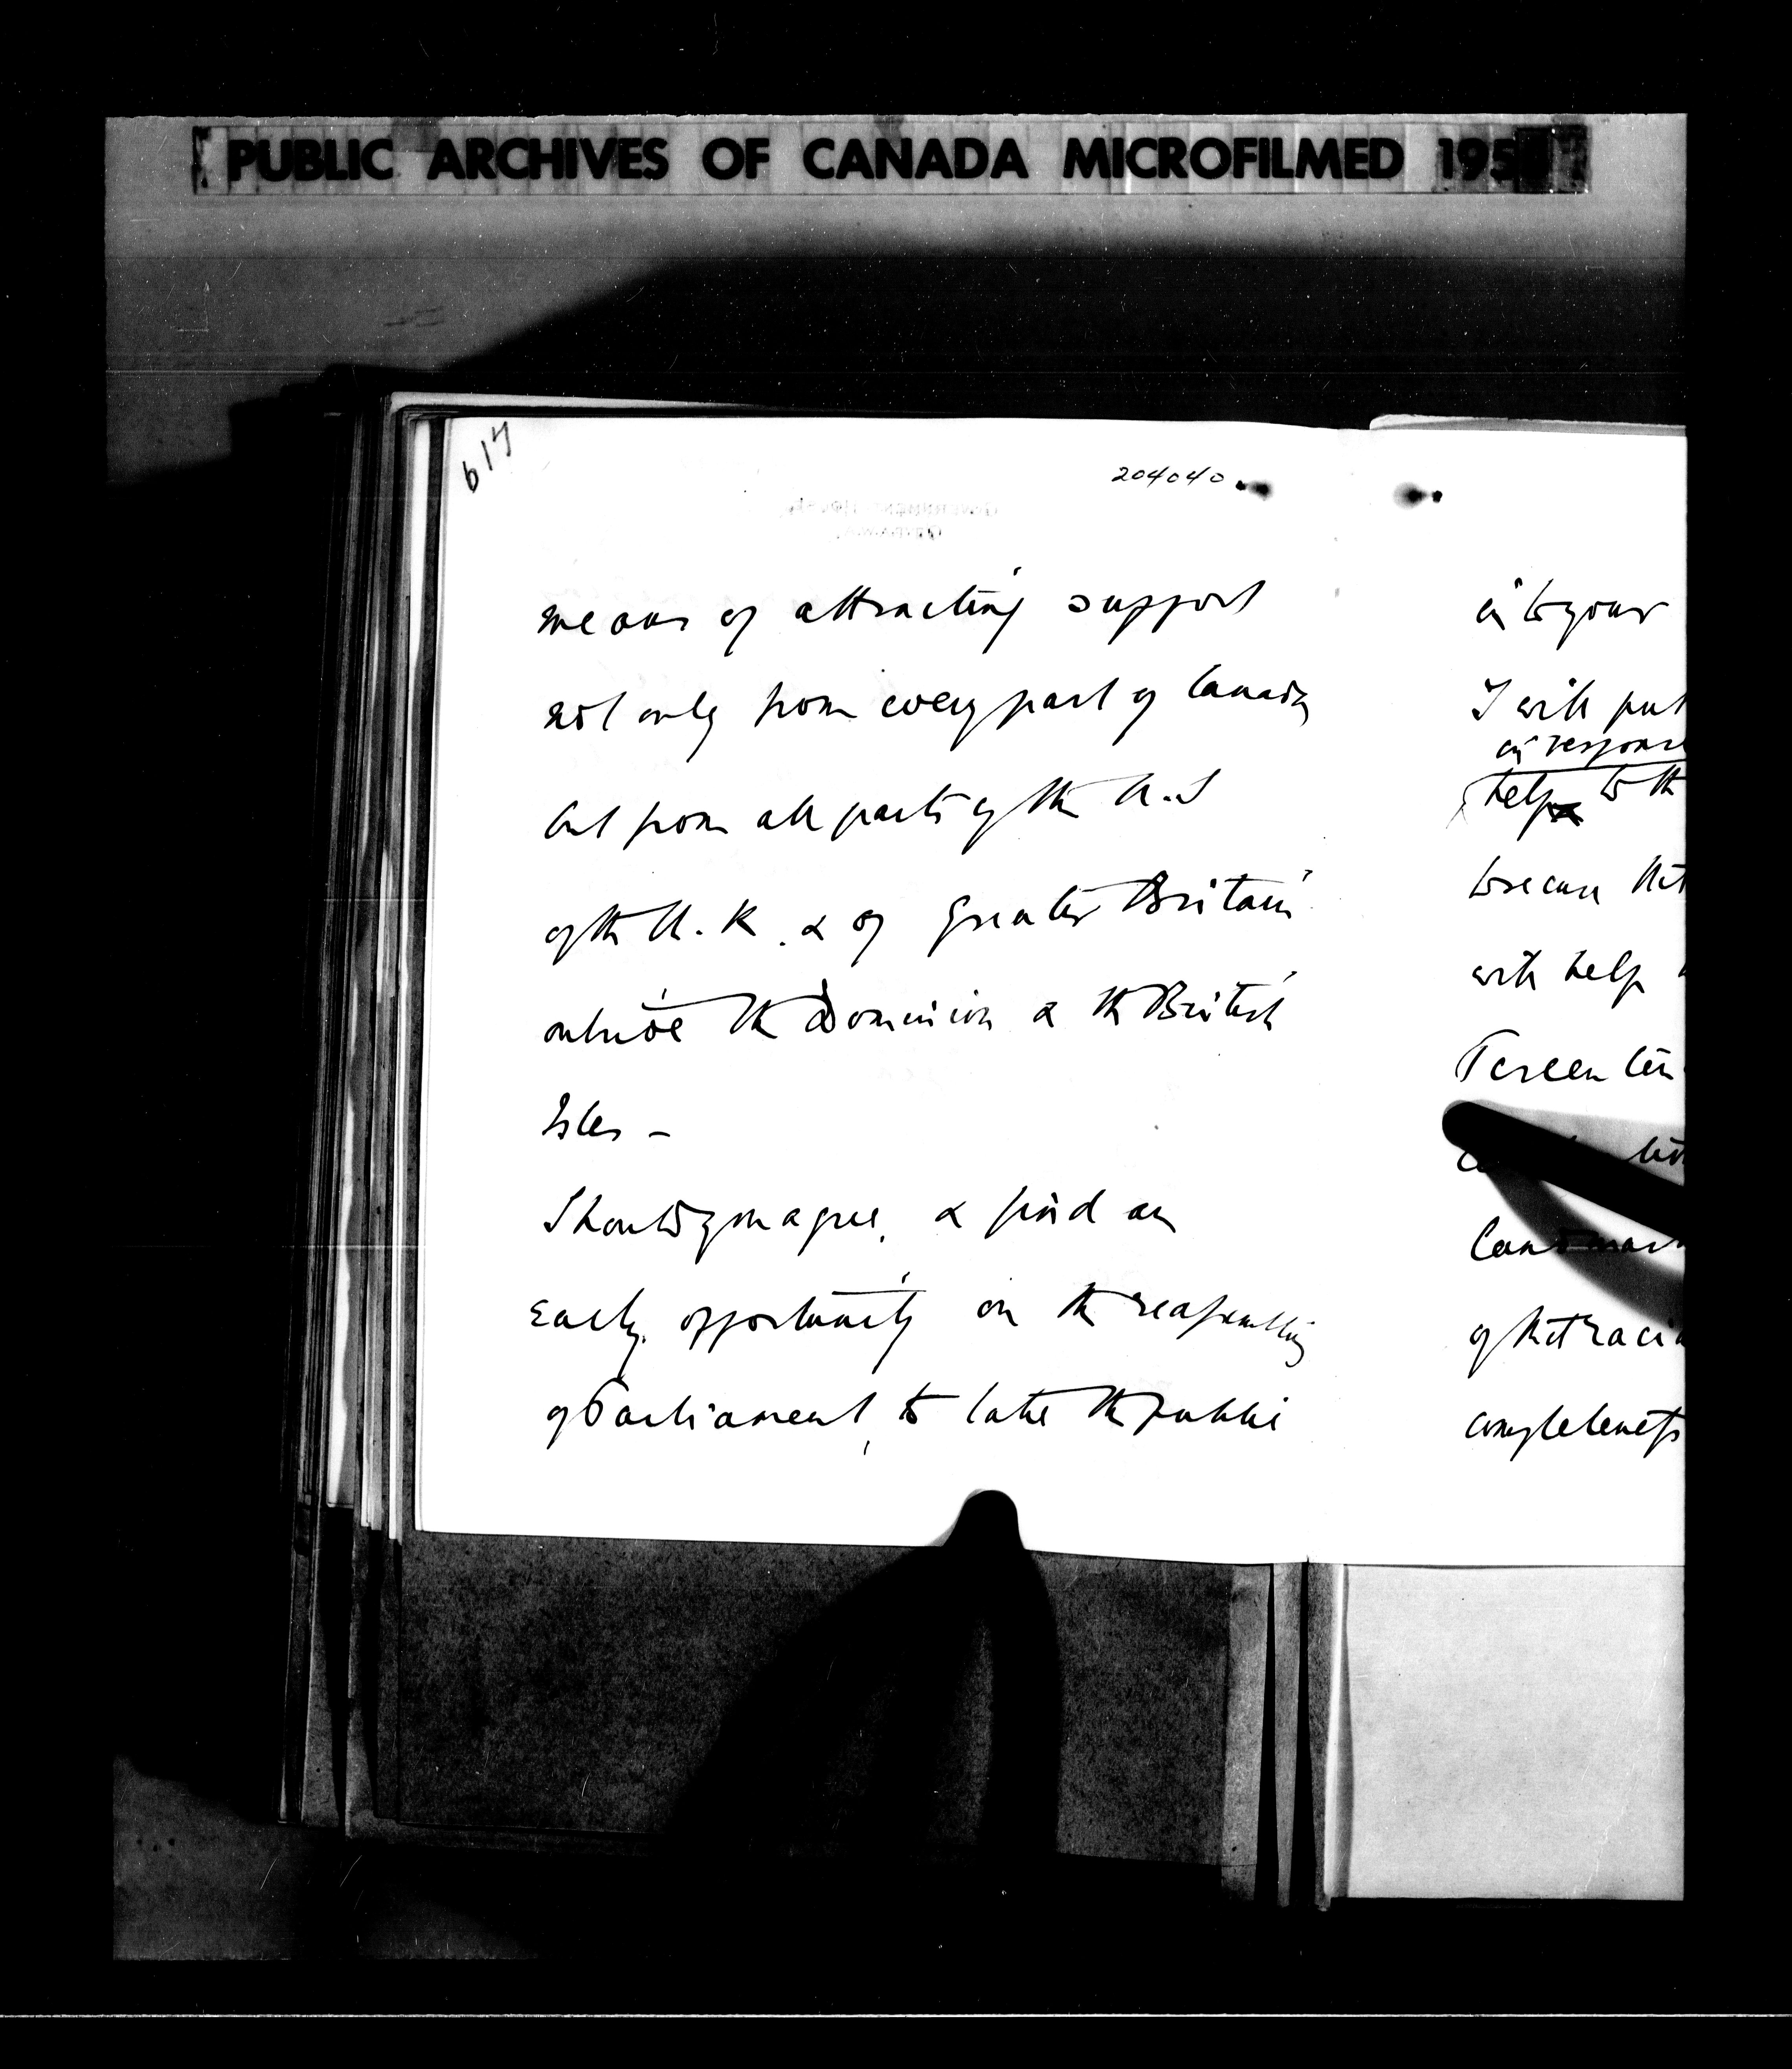 PUBLIC ARCHIVES OF CANADA MICROFILMED 195
617
204040
GOVERNMENT HOUSE,
OTTAWA.
means of attracting support
not only from every part of Canada
but from all parts of the U.S
of the U.K. & of Greater Britain
outside the Dominion & the British
Isles –
Should you agree, & find an
early opportunity on the reassembling
of Parliament, to take the public
into your
I will put
in response
help to th
because
with help
Tercen
Land mar
of that raci
completeness